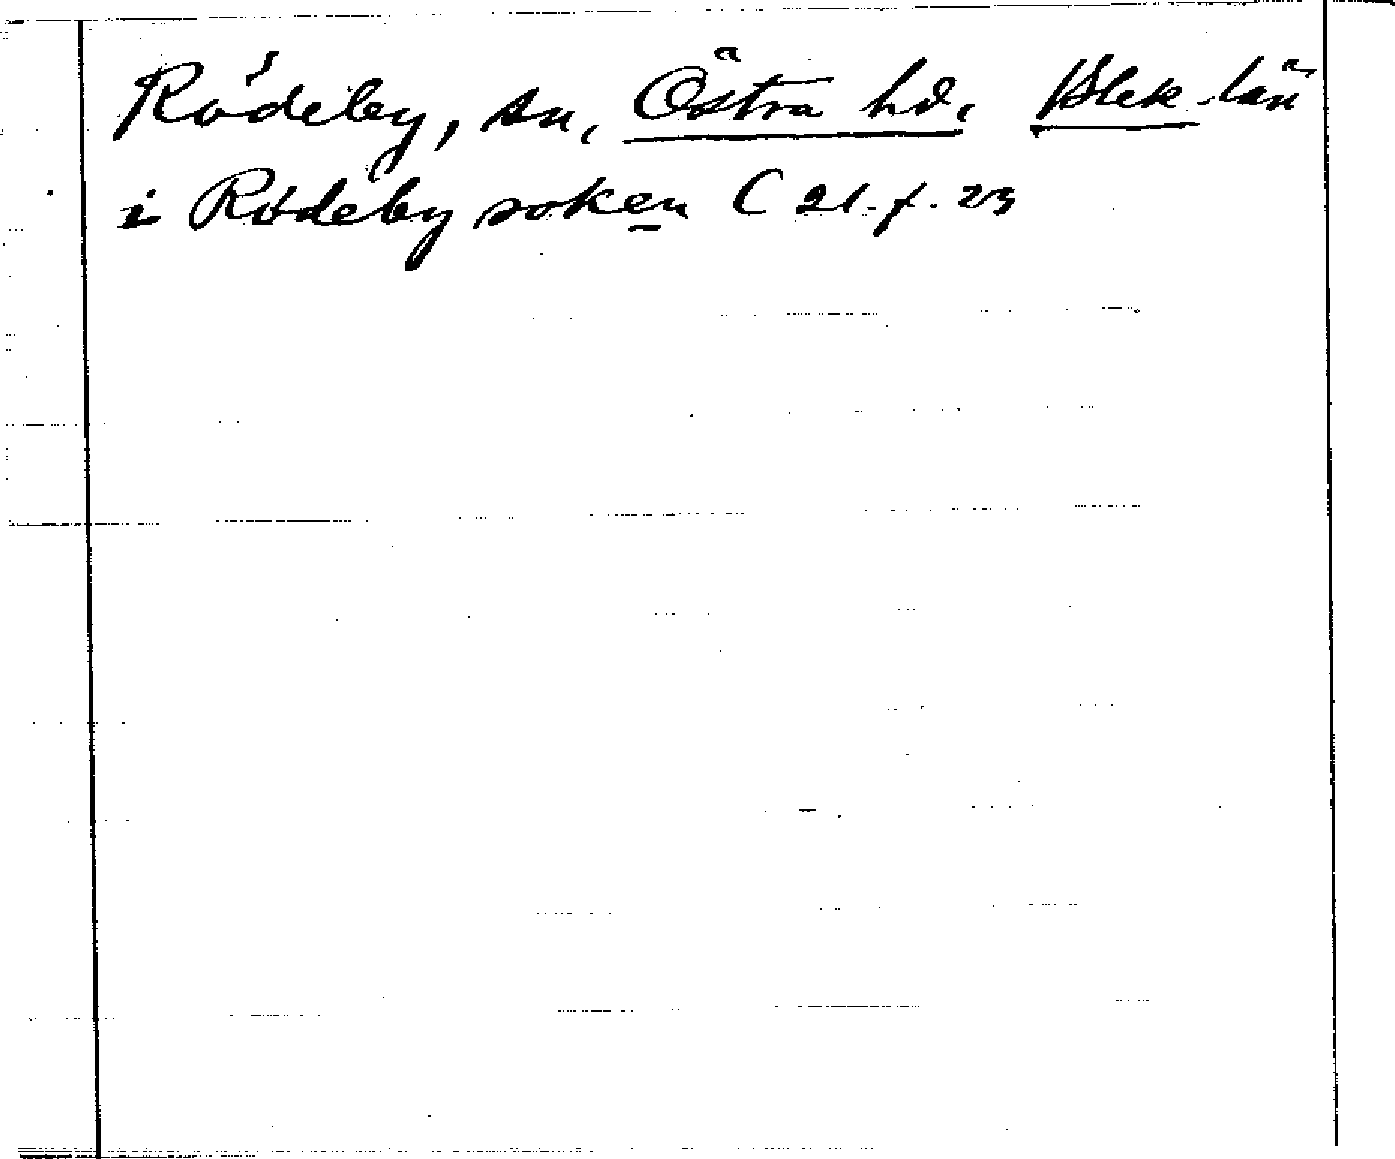 Rödeby, sn, Östra hd, Blek. län
i Rödeby soken C 21. f. 23